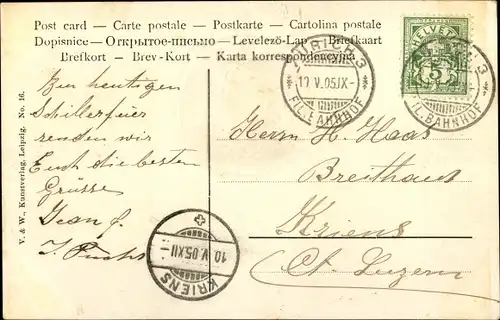 Post card — Carte postale — Postkarte — Cartolina postale
Dopisnice — Открытое-письмо — Levelező-Lap — Brefkaart
Brefkort — Brev-Kort — Karta korrespondencyjna
HELVETIA
5
ZÜRICH 3
10 V. 05 IX-
FIL. BAHNHOF
3
FIL. BAHNHOF
Zur heutigen
Schillerfeier
senden wir
Euch die besten
Grüsse
Jean &
J. Fuchs
V. & W., Kunstverlag, Leipzig. No. 16.
Herrn H. Haas
Breithaus
Kriens
Ct. Luzern
10 V. 05 XII
KRIENS